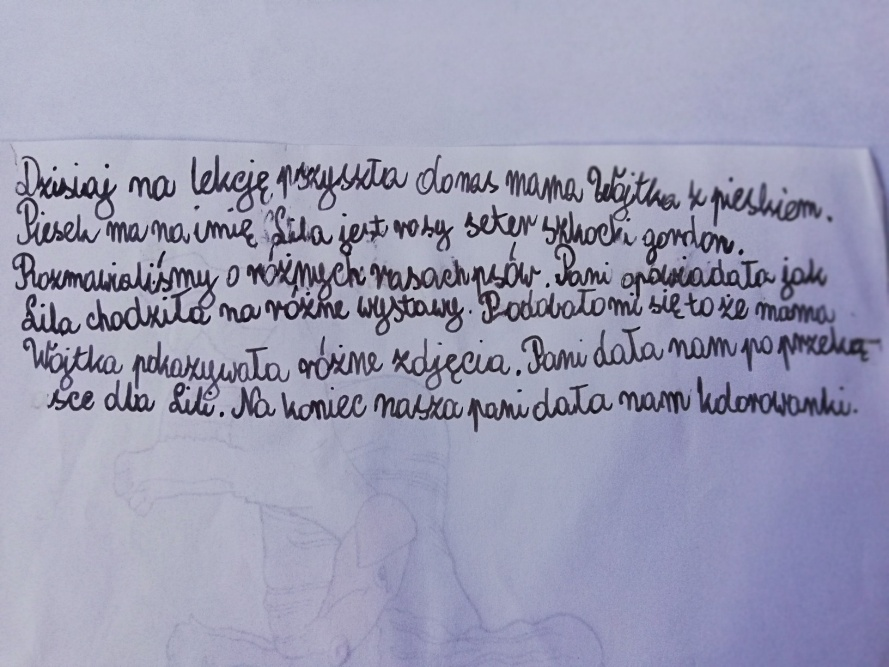 Dzisiaj na lekcję przyszła do nas mama Wojtka z pieskiem.
Piesek ma na imię Lila jest rasy seter szkocki gordon.
Rozmawialiśmy o różnych rasach psów. Pani opowiadała jak
Lila chodziła na różne wystawy. Podobało mi się to że mama
Wojtka pokazywała różne zdjęcia. Pani dała nam po przeką-
sce dla Lili. Na koniec nasza pani dała nam kolorowanki.